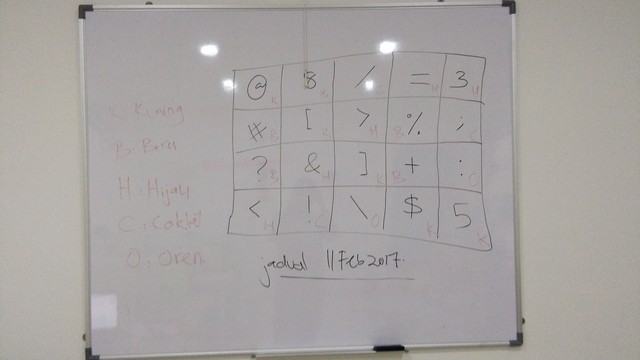 @ K 8 K / = H 3 H
# B [ K > H B % ; C
? B & H ] K B + : O
< H ! C \ O $ K 5 K
K: Kuning
B: Biru
H: Hijau
C: Coklat
O: Oren
jadual 11 Feb 2017.